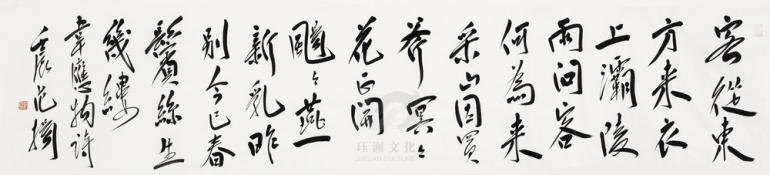 客從東
方来衣
上灞陵
雨问客
何為来
采山因買
斧冥々
花正開
颺々燕
新乳昨
别今已春
鬢絲生
幾縷
韋應物詩
辰范
珏澜文化
JUELAN CULTURE